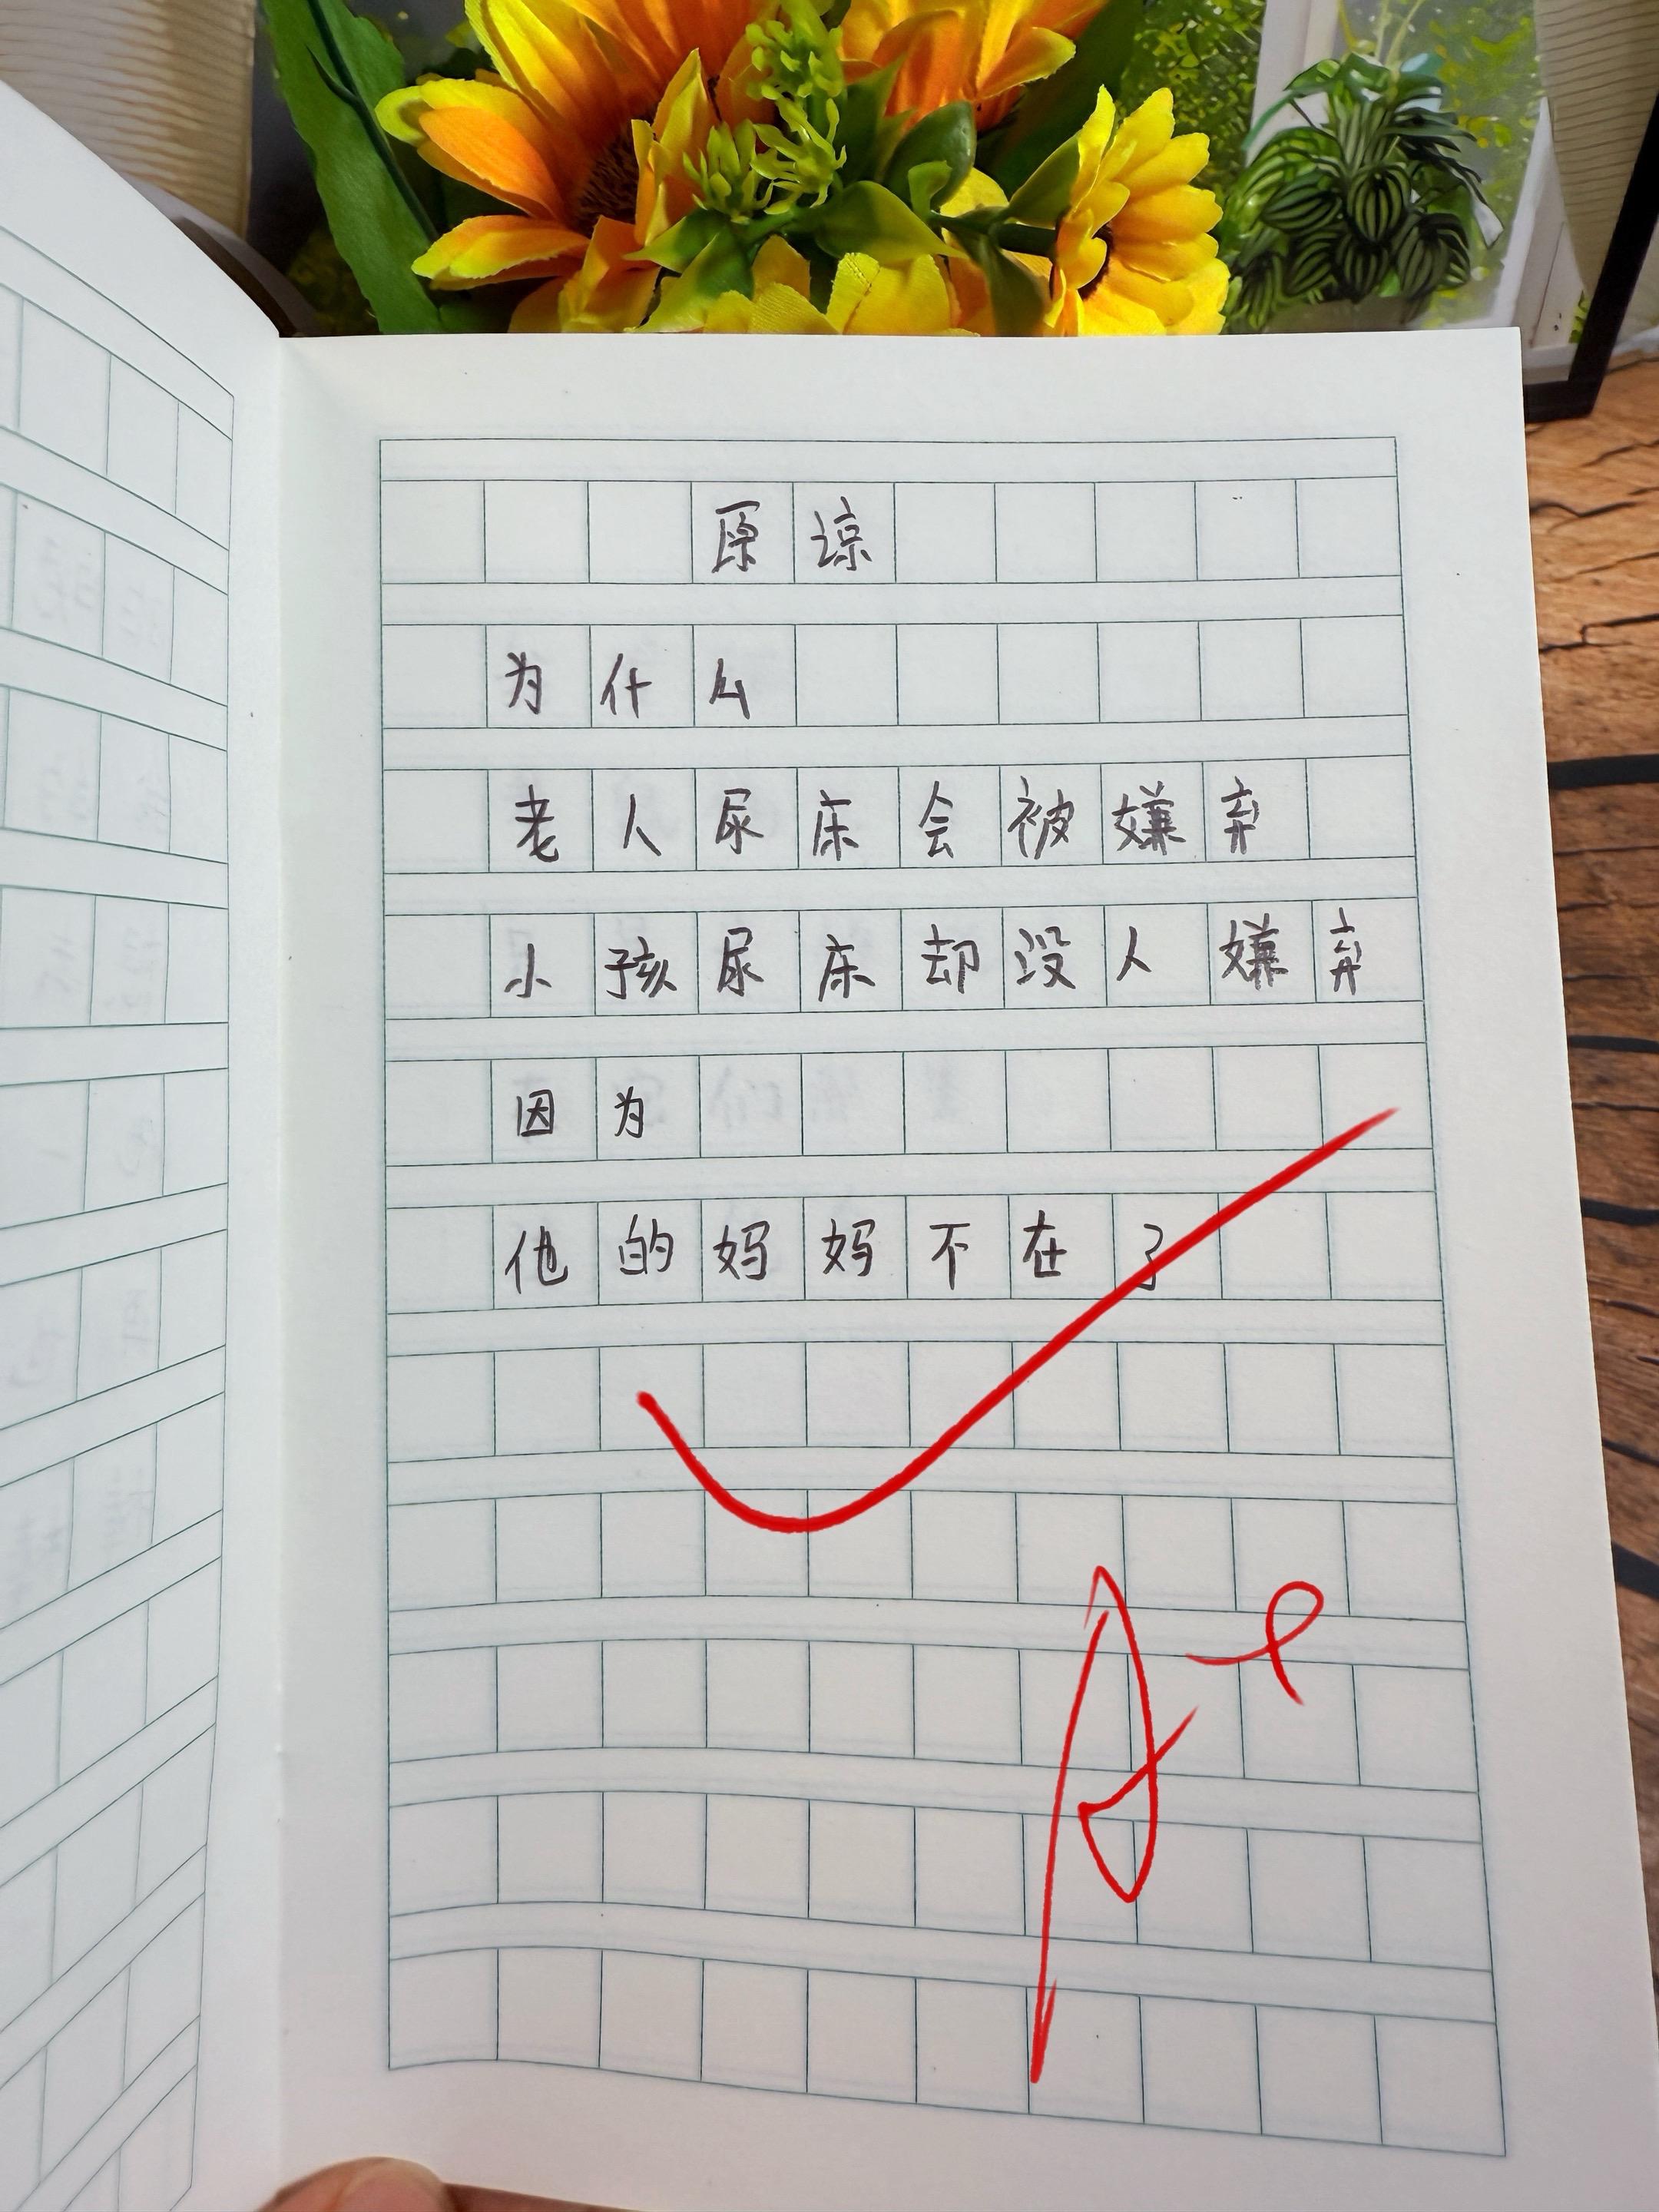 原谅
为什么
老人尿床会被嫌弃
小孩尿床却没人嫌弃
因为
他的妈妈不在了
A